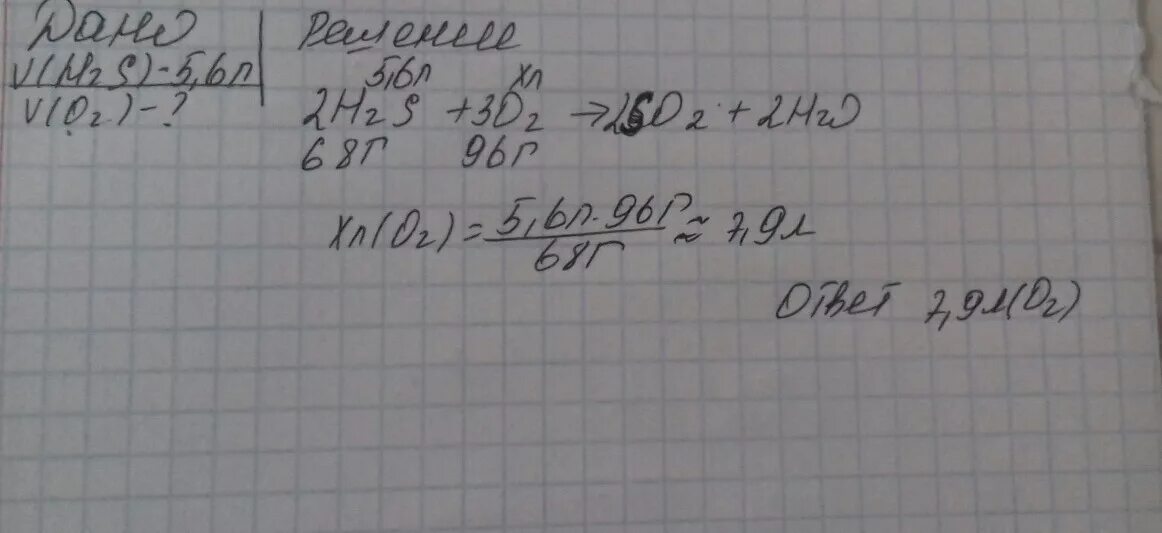 Дано
V(H2S)-5,6л
V(O2)-?
Решение
5,6л хл
2H2S +3O2 →2SO2 + 2H2O
68г 96г
Хл(O2) = 5,6л·96г / 68г ≈ 7,9л
Ответ 7,9л(O2)